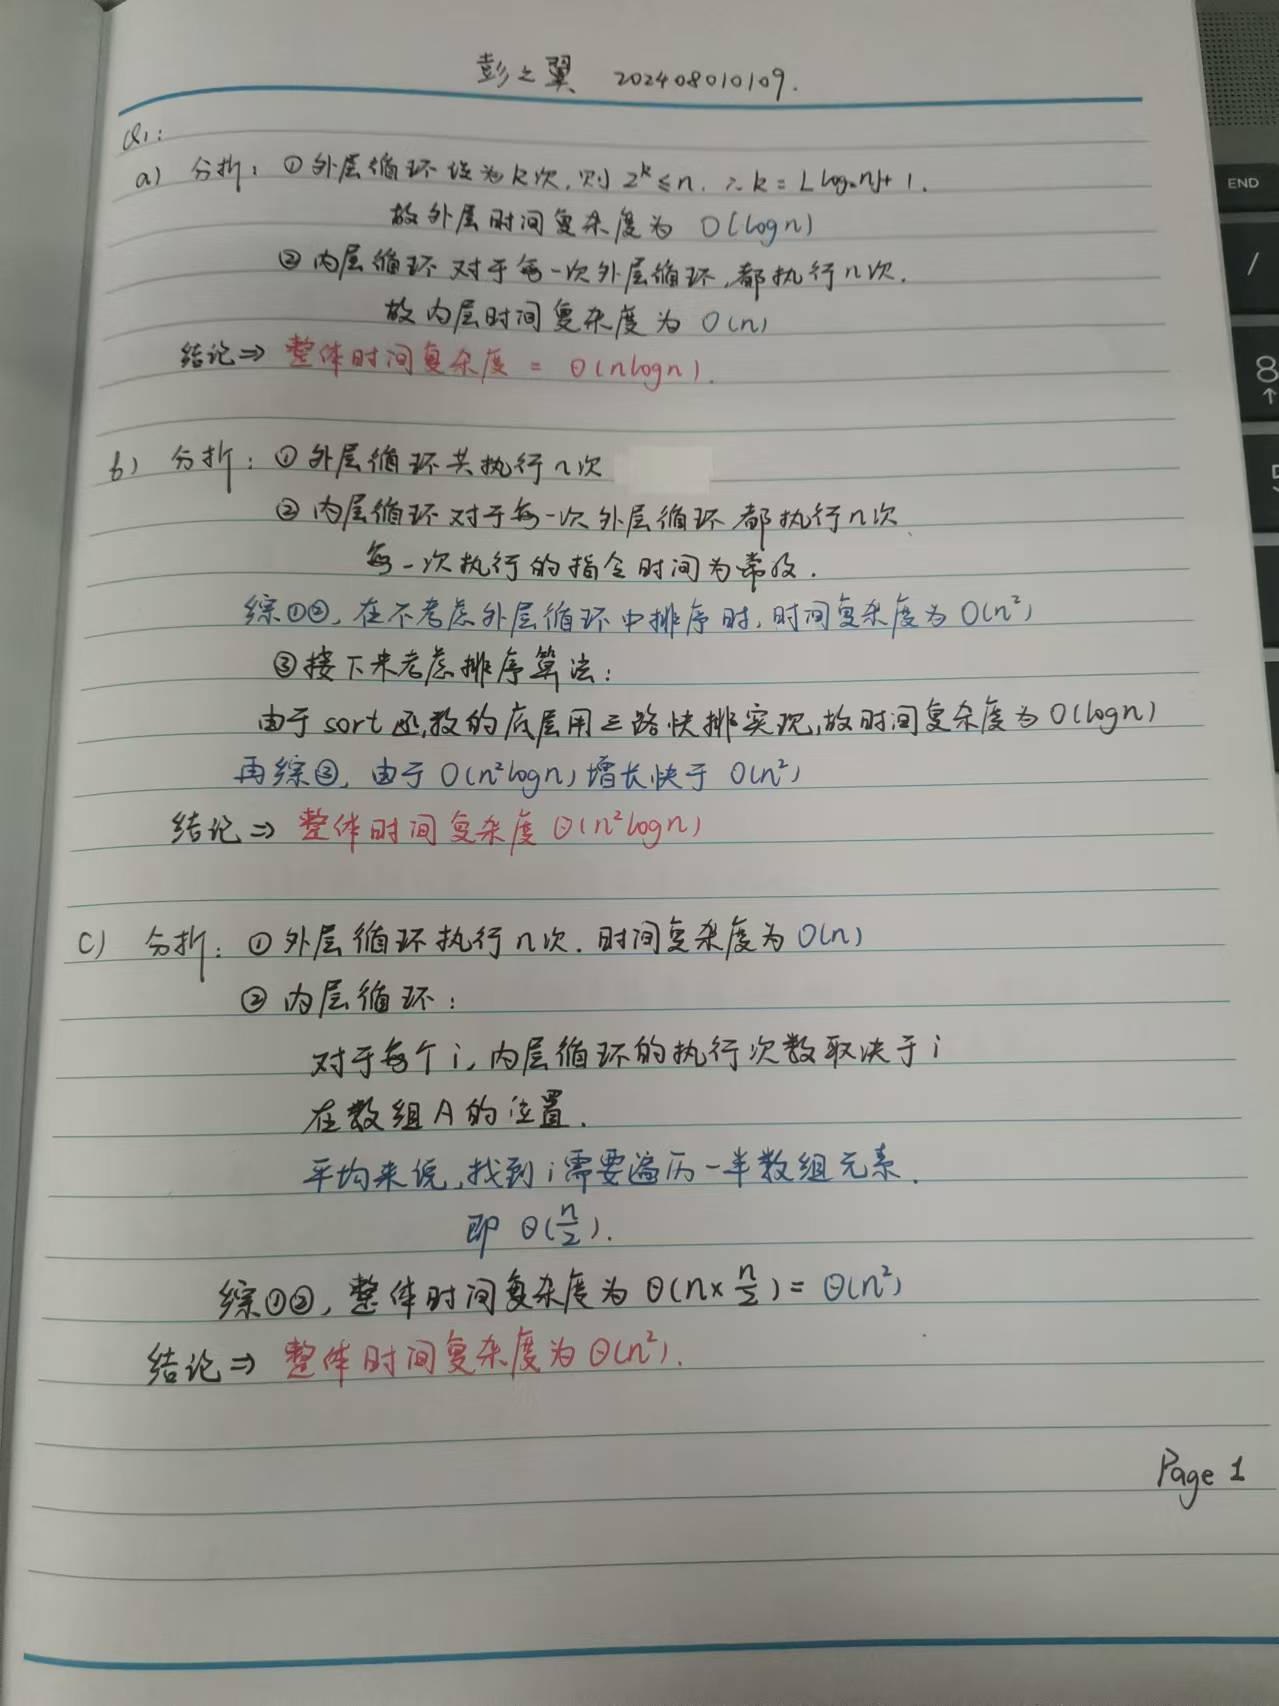 彭之翼 202408010109.
Q1:
a) 分析: ①外层循环设为k次,则 2^k ≤ n. ∴ k = ⌊log₂n⌋+1.
故外层时间复杂度为 O(logn)
②内层循环对于每一次外层循环,都执行n次.
故内层时间复杂度为 O(n)
结论⇒ 整体时间复杂度 = Θ(nlogn).
b) 分析: ①外层循环共执行n次
②内层循环对于每一次外层循环都执行n次、
每一次执行的指令时间为常数.
综①②, 在不考虑外层循环中排序时, 时间复杂度为 O(n²)
③接下来考虑排序算法:
由于 sort 函数的底层用三路快排实现,故时间复杂度为 O(logn)
再综③, 由于 O(n²logn) 增长快于 O(n²)
结论⇒ 整体时间复杂度 Θ(n²logn)
C) 分析: ①外层循环执行n次. 时间复杂度为 O(n)
②内层循环:
对于每个i,内层循环的执行次数取决于i
在数组A的位置.
平均来说,找到i需要遍历一半数组元素.
即 Θ(n/2).
综①②, 整体时间复杂度为 Θ(n×n/2) = Θ(n²)
结论⇒ 整体时间复杂度为 Θ(n²).
Page 1
END
/
8
↑